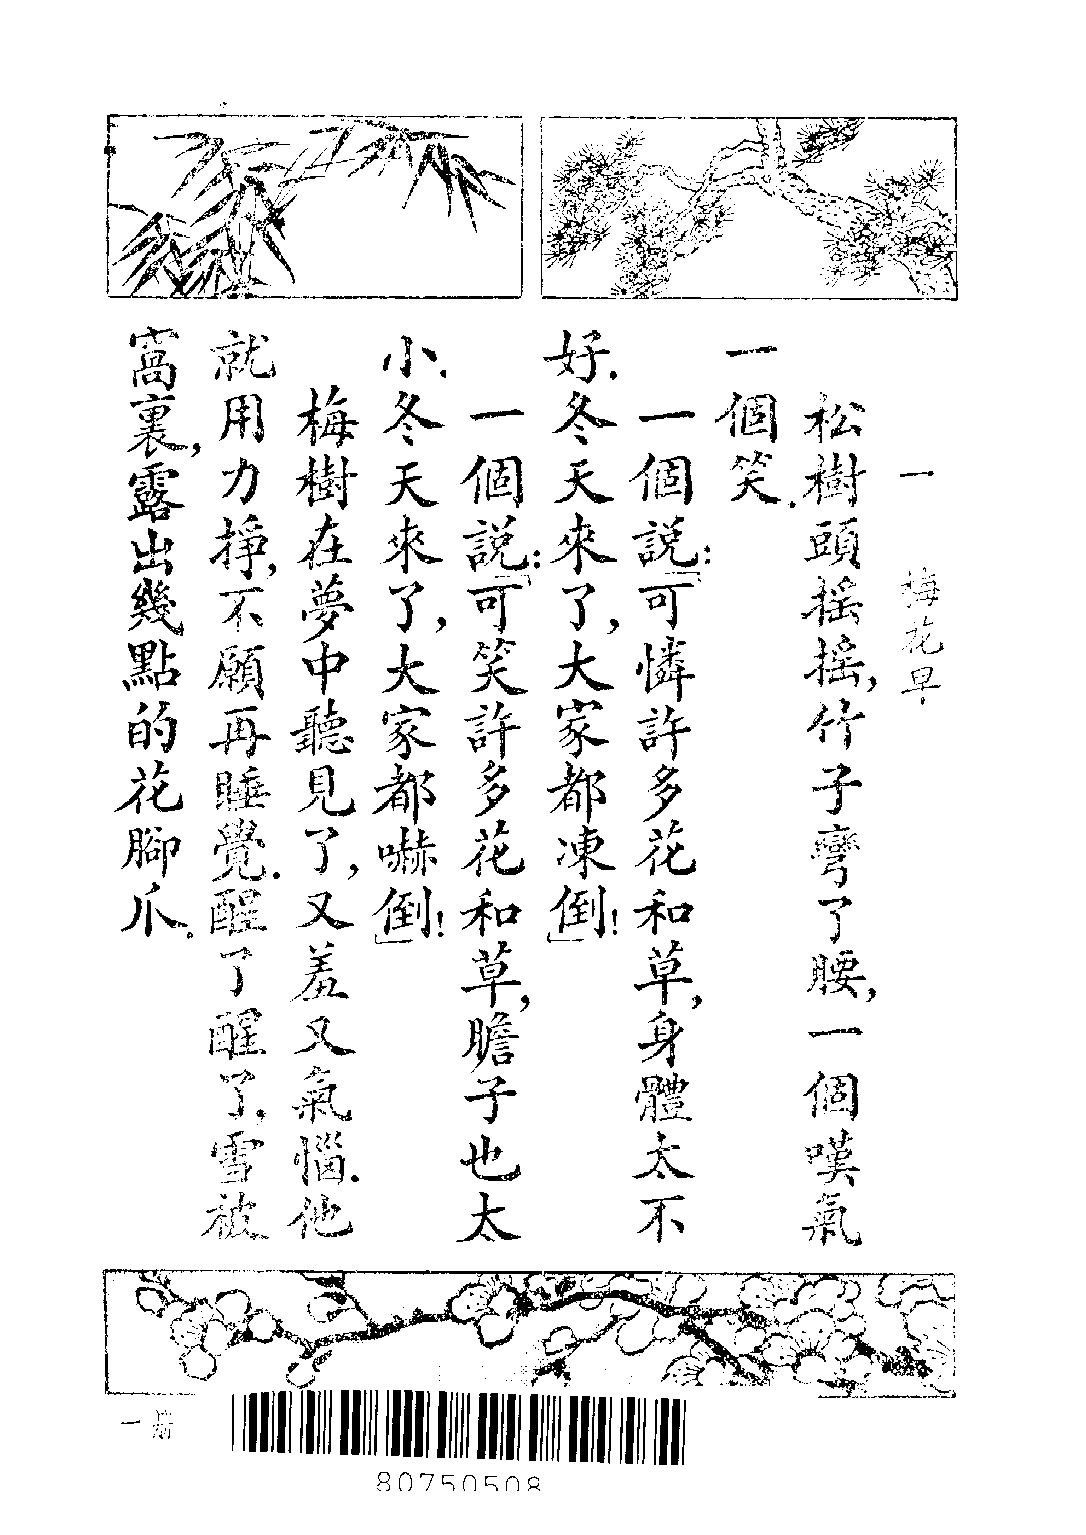 一　梅花早
松樹頭摇摇，竹子彎了腰，一個嘆氣
一個笑．
一個説：「可憐許多花和草，身體太不
好．冬天來了，大家都凍倒！」
一個説：「可笑許多花和草，膽子也太
小．冬天來了，大家都嚇倒！」
梅樹在夢中聽見了，又羞又氣惱．他
就用力掙，不願再睡覺．醒了醒了，雪被
窩裏，露出幾點的花腳爪。
一
80750508